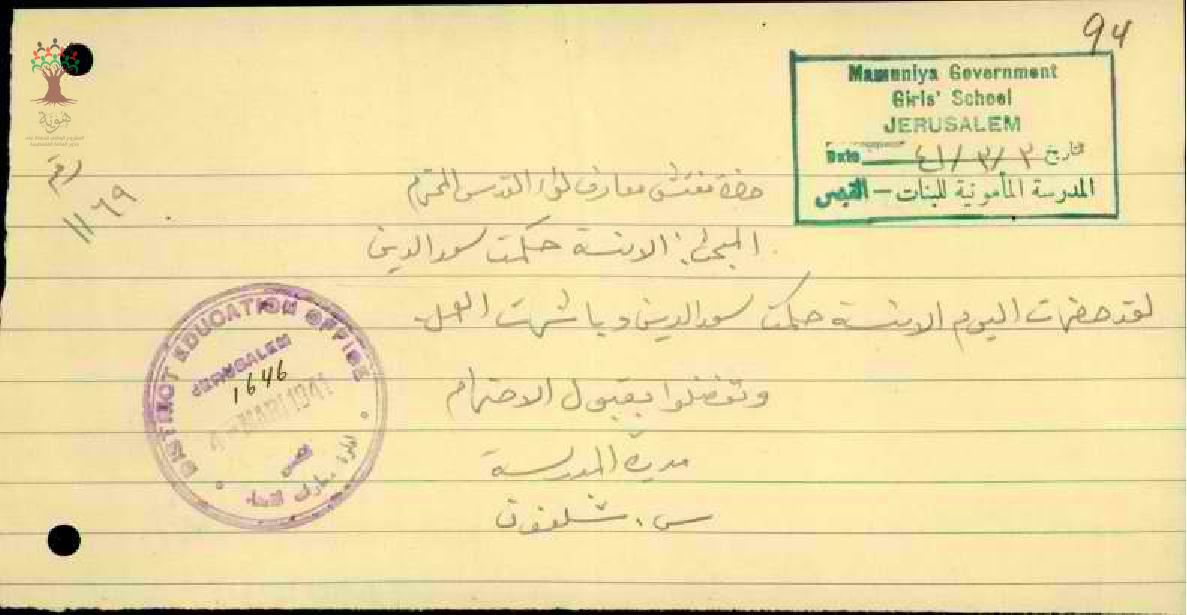 94
Mamuniya Government
Girls' School
JERUSALEM
Date ٤١/٣/٣ تاريخ
المدرسة المأمونية للبنات – القدس
هوية
رقم
١١٦٩
حضرة مفتش معارف لواء القدس المحترم
المبحث: الانسة حكمت سعد الدين
لقد حضرت اليوم الانسة حكمت سعد الدين وباشرت العمل.
وتفضلوا بقبول الاحترام
مديرة المدرسة
س.
DISTRICT EDUCATION OFFICE
JERUSALEM
1646
4 - MAR 1941
القدس